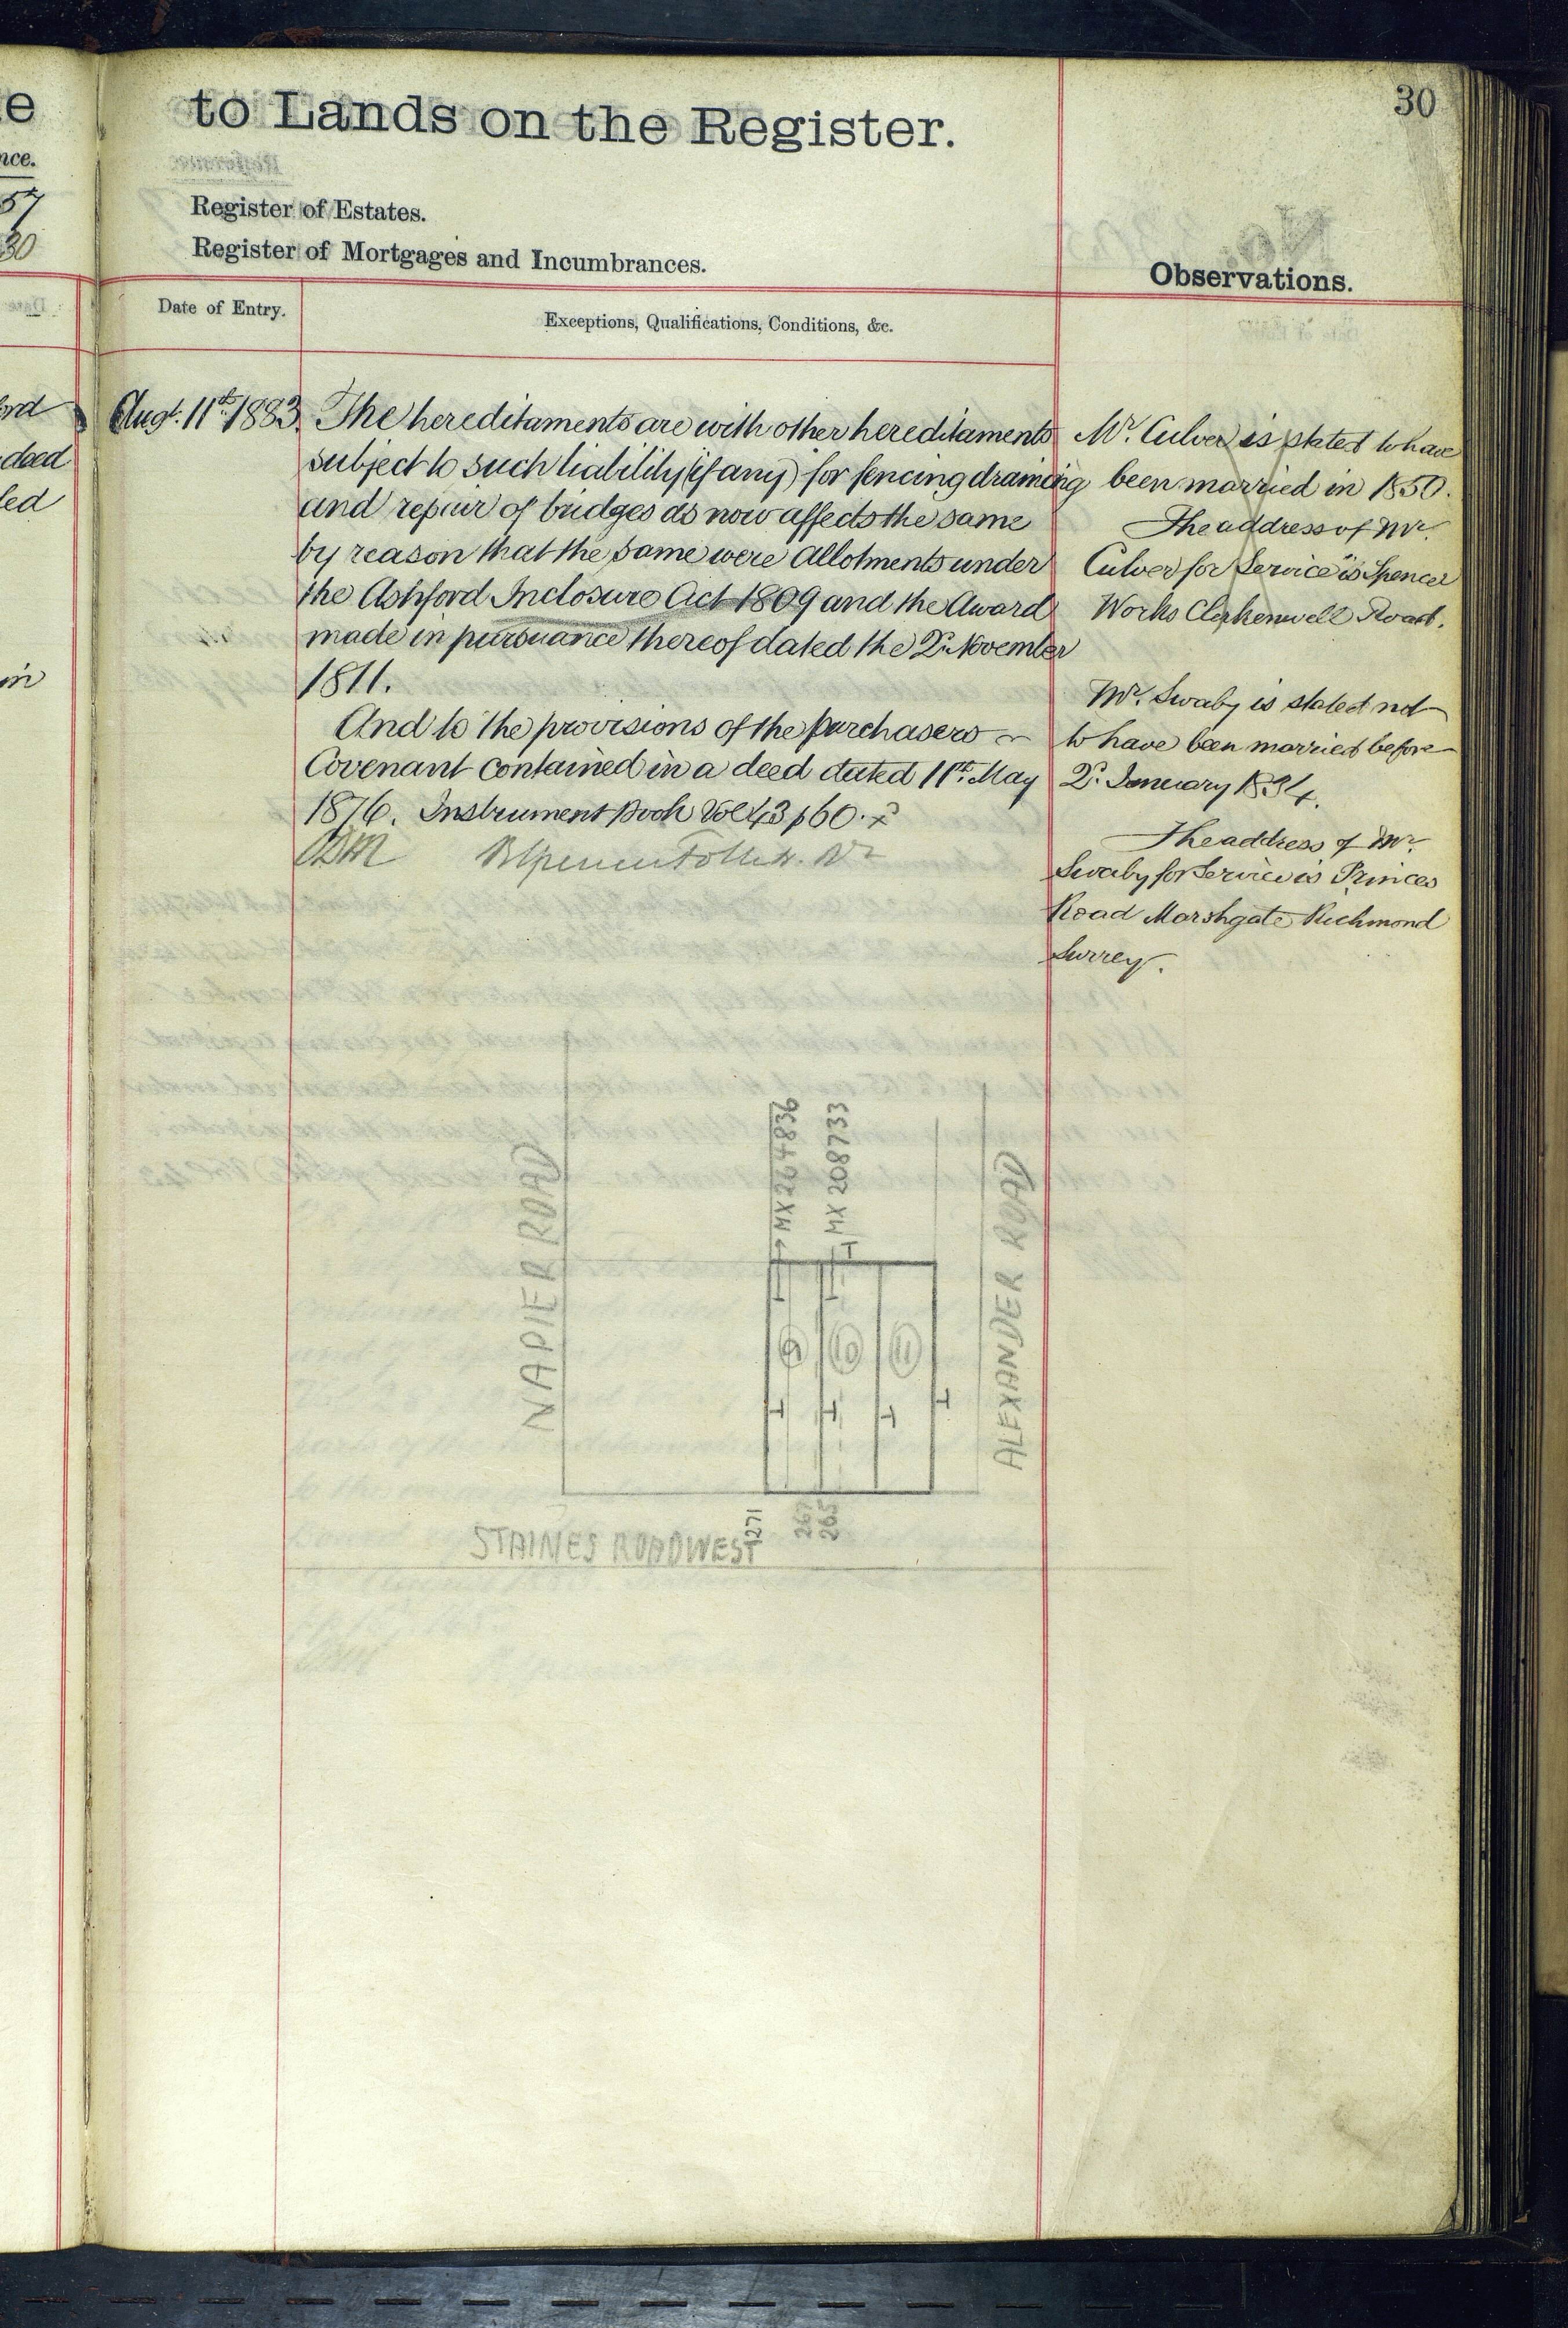 to Lands on the Register.
30
Register of Estates.
Register of Mortgages and Incumbrances.
Observations.
Date of Entry.
Exceptions, Qualifications, Conditions, &c.
Augt. 11th 1883.
The hereditaments are with other hereditaments
subject to such liability (if any) for fencing draining
and repair of bridges as now affects the same
by reason that the same were allotments under
the Ashford Inclosure Act 1809 and the Award
made in pursuance thereof dated the 2nd November
1811.
And to the provisions of the purchasers
Covenant contained in a deed dated 11th May
1876. Instrument Book Vol 43 p 60.
Mr. Culver is stated to have
been married in 1850.
The address of Mr.
Culver for Service is Spencer
Works Clerkenwell Road.
Mr. Swaby is stated not
to have been married before
2nd January 1834.
The address of Mr.
Swaby for Service is Princes
Road Marshgate Richmond
Surrey.
NAPIER ROAD
MX 264836
MX 208733
ALEXANDER ROAD
9
10
11
271
267
265
STAINES ROAD WEST